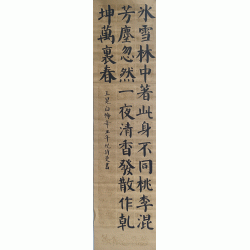 氷雪林中著此身不同桃李混
芳塵忽然一夜清香發散作乹
坤萬裏春
王冕白梅